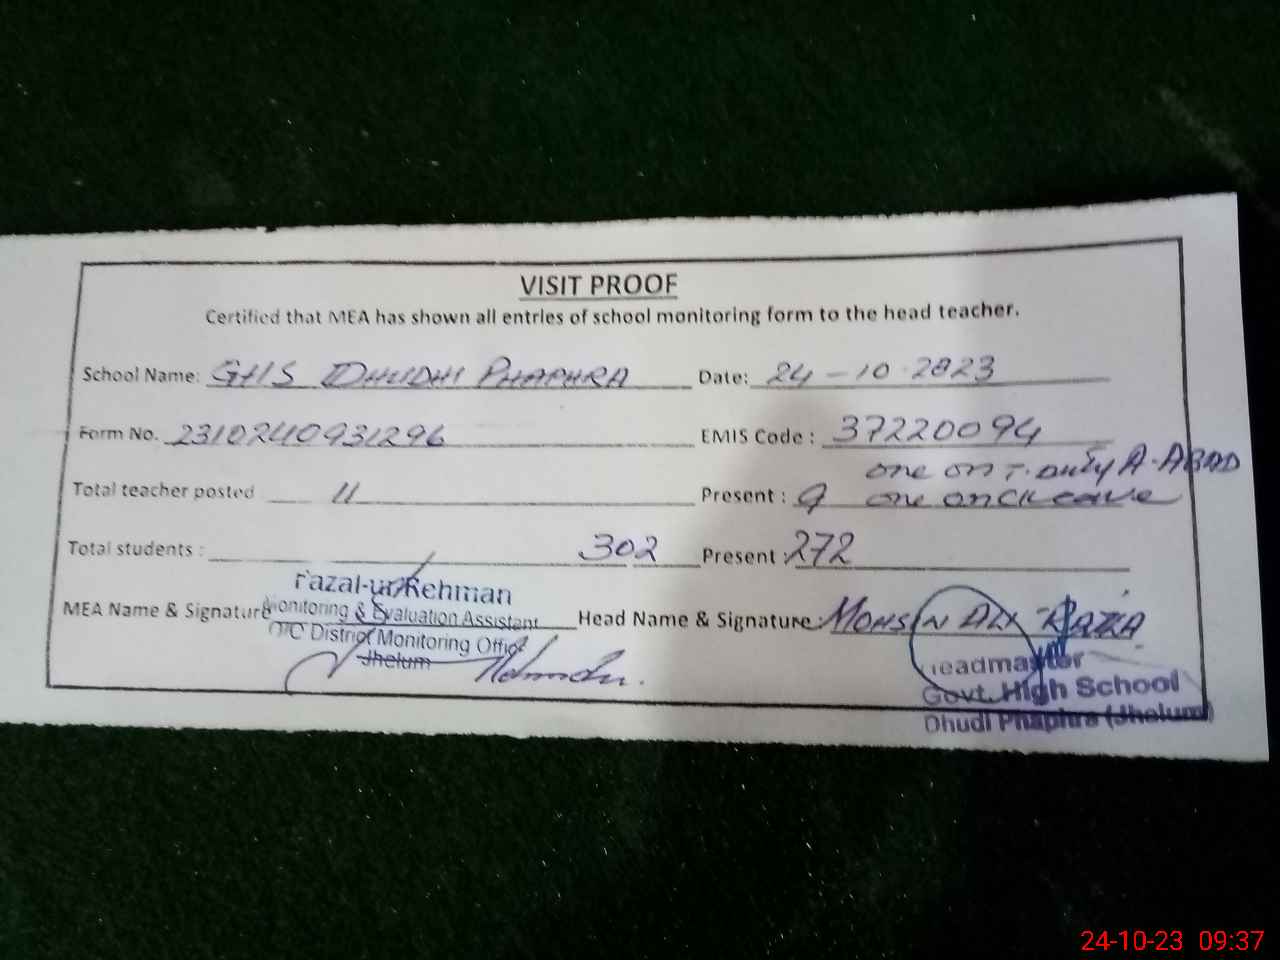 VISIT PROOF
Certified that MEA has shown all entries of school monitoring form to the head teacher.
School Name: GHS DHUDHI PHAPHRA Date: 24-10-2023
Form No. 2310240931296 EMIS Code : 37220094
one on T. duty A-ABAD
Total teacher posted 11 Present : 9 one on leave
Total students : 302 Present : 272
Fazal-ur-Rehman
MEA Name & Signature Monitoring & Evaluation Assistant Head Name & Signature MOHSIN ALI RAZZA
O/C District Monitoring Office
Jhelum
Headmaster
Govt. High School
Dhudi Phaphra (Jhelum)
24-10-23 09:37